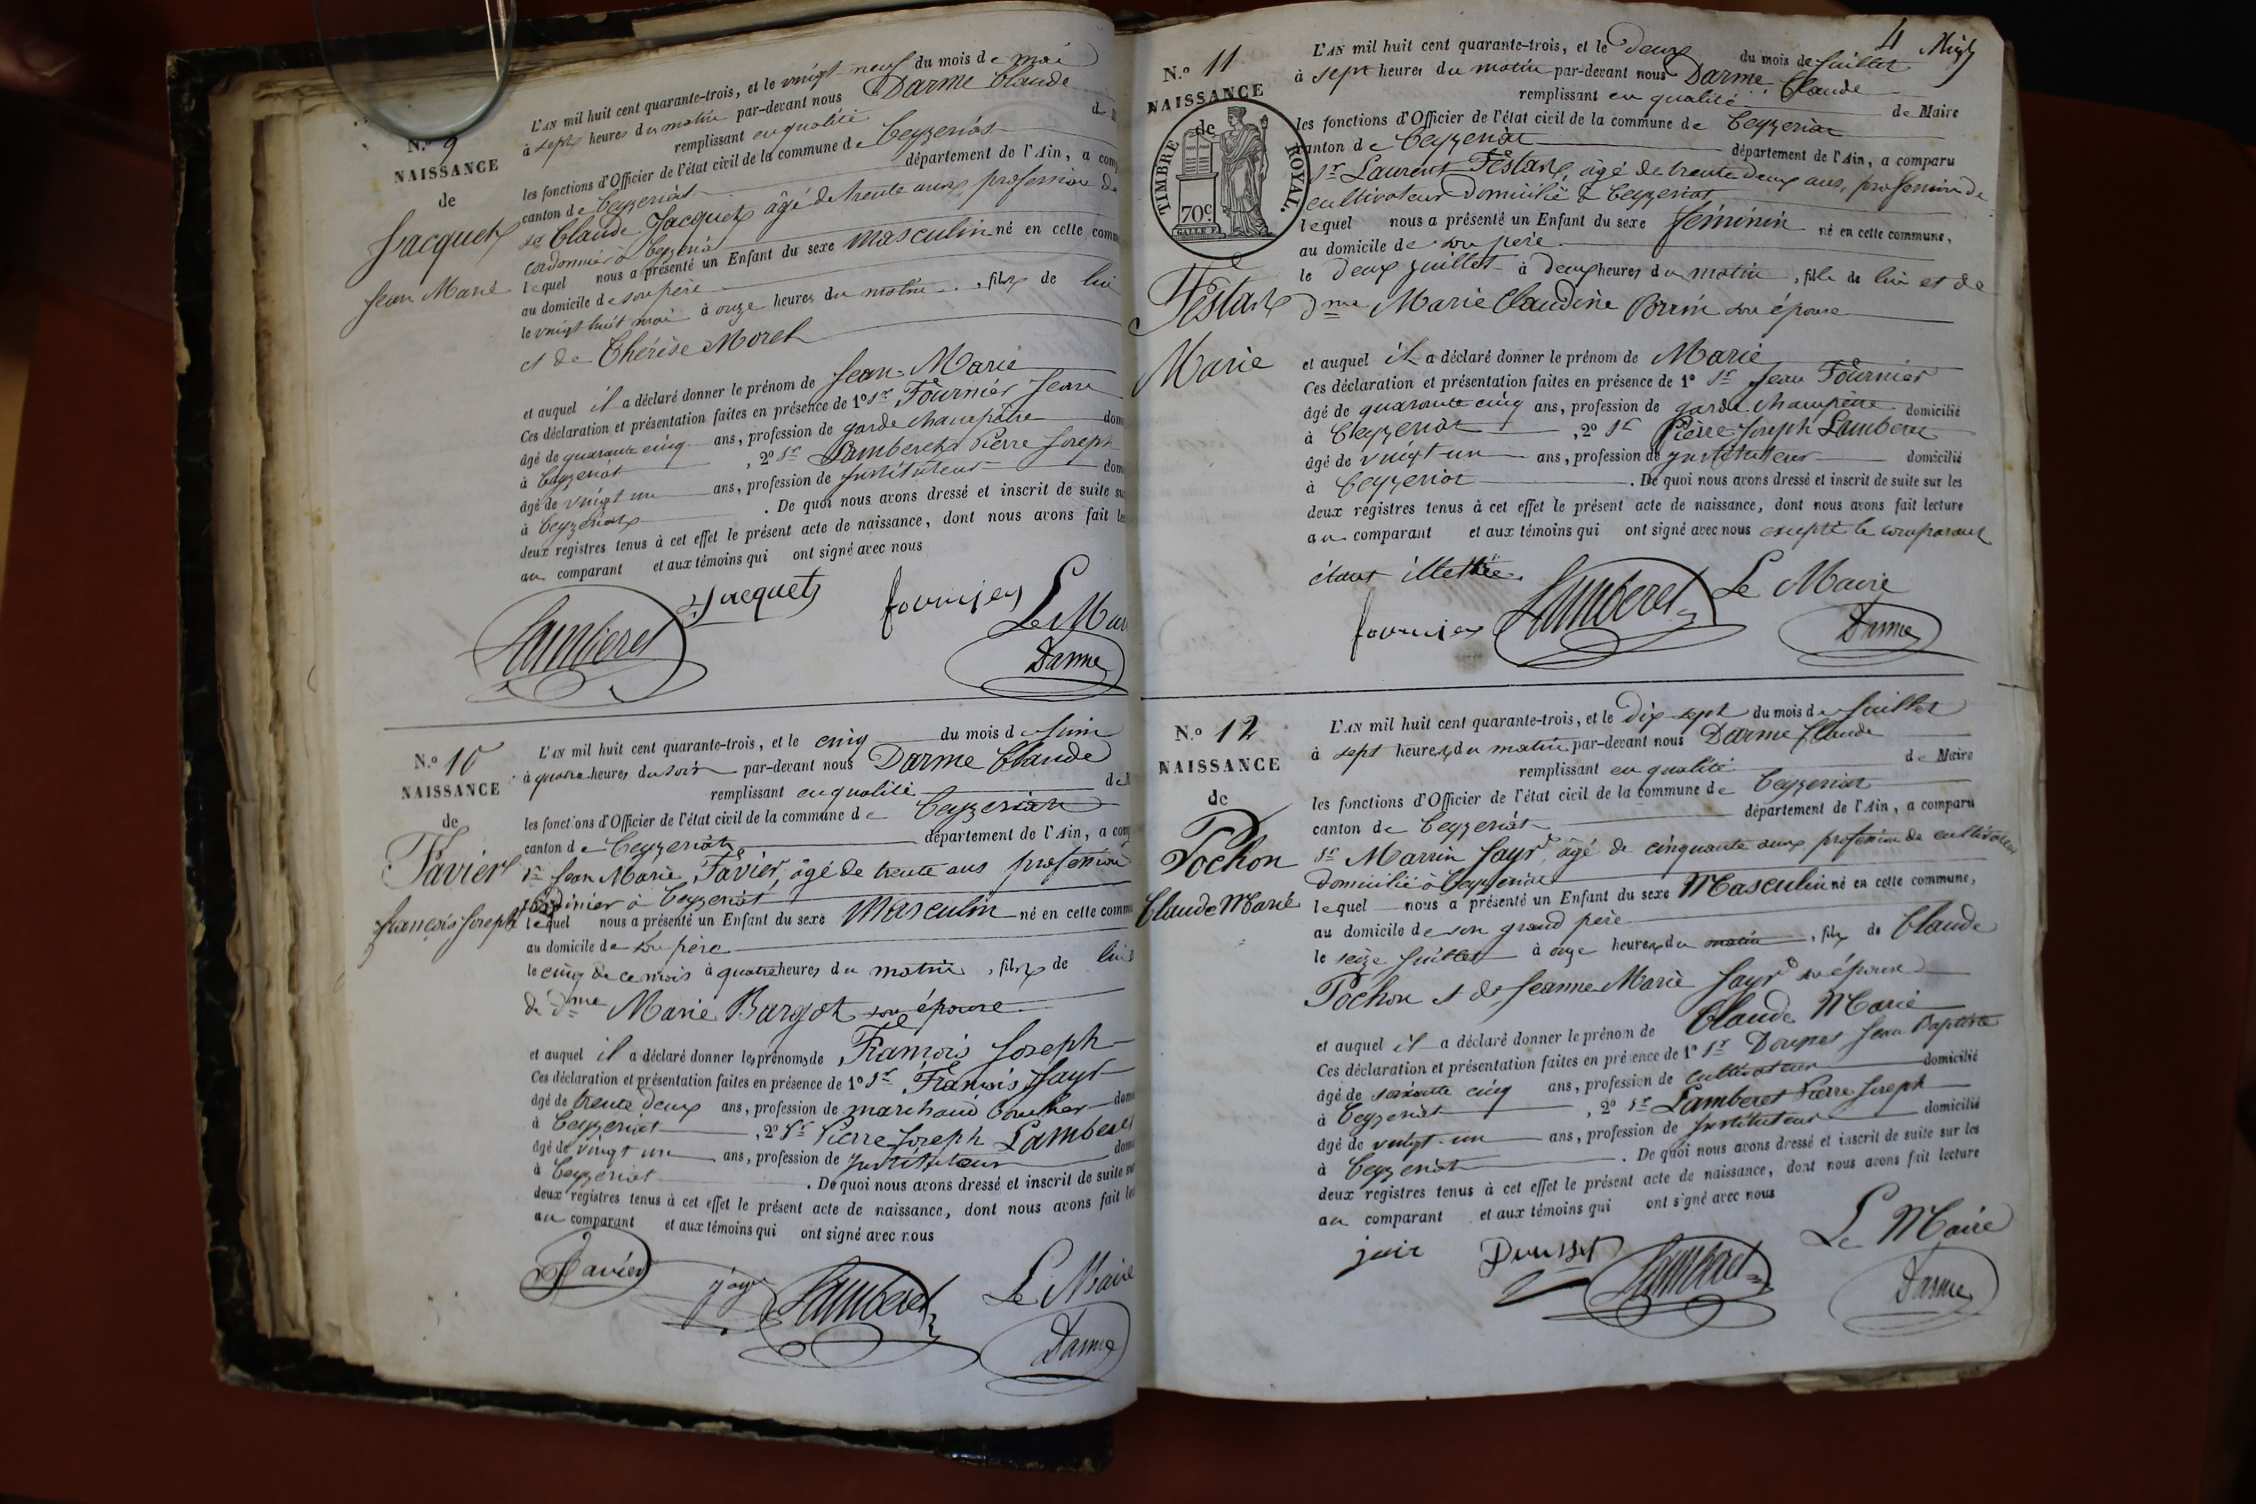 N.º 9
NAISSANCE
de
Jacquet
Jean Marie
L'AN mil huit cent quarante-trois, et le vingt neuf du mois de mai
à sept heures du matin par-devant nous Darme Claude
remplissant en qualité de
les fonctions d'Officier de l'état civil de la commune de Ceyzeriat
canton de Ceyzeriat département de l'Ain, a com
sr Claude Jacquet âgé de trente ans, profession de
cordonnier à Ceyzeriat
lequel nous a présenté un Enfant du sexe masculin né en cette comm
au domicile de son père
le vingt huit mai à onze heures du matin, fils de lui
et de Thérèse Morel
et auquel il a déclaré donner le prénom de Jean-Marie
Ces déclaration et présentation faites en présence de 1º sr Fournier Jean
âgé de quarante cinq ans, profession de garde champêtre domi
à Ceyzeriat, 2º sr Lamberet Pierre Joseph
âgé de vingt un ans, profession de Instituteur domi
à Ceyzeriat. De quoi nous avons dressé et inscrit de suite su
deux registres tenus à cet effet le présent acte de naissance, dont nous avons fait le
au comparant et aux témoins qui ont signé avec nous
Jacquet fournier Le Mai
Lamberet Darme
N.º 10
NAISSANCE
de
Favier
François Joseph
L'AN mil huit cent quarante-trois, et le cinq du mois de Juin
à quatre heures du soir par-devant nous Darme Claude
remplissant en qualité de
les fonctions d'Officier de l'état civil de la commune de Ceyzeriat
canton de Ceyzeriat département de l'Ain, a com
sr Jean Marie Favier, âgé de trente ans profession
jardinier à Ceyzeriat
lequel nous a présenté un Enfant du sexe Masculin né en cette comm
au domicile de son père
le cinq de ce mois à quatre heures du matin, fils de lui
de dme Marie Bargot son épouse
et auquel il a déclaré donner les prénoms de François Joseph
Ces déclaration et présentation faites en présence de 1º sr François Jayr
âgé de trente deux ans, profession de marchand boucher domi
à Ceyzeriat, 2º sr Pierre Joseph Lamberet
âgé de vingt un ans, profession de Instituteur domi
à Ceyzeriat. De quoi nous avons dressé et inscrit de suite sur
deux registres tenus à cet effet le présent acte de naissance, dont nous avons fait le
au comparant et aux témoins qui ont signé avec nous
Favier Lamberet Le Maire
Darme
4
N.º 11
NAISSANCE
de
TIMBRE ROYAL.
70c
Féstaz
Marie
L'AN mil huit cent quarante-trois, et le deux du mois de Juillet
à sept heures du matin par-devant nous Darme Claude
remplissant en qualité de Maire
les fonctions d'Officier de l'état civil de la commune de Ceyzeriat
canton de Ceyzeriat département de l'Ain, a comparu
sr Laurent Féstaz, âgé de trente deux ans, profession de
cultivateur domicilié à Ceyzeriat
lequel nous a présenté un Enfant du sexe féminin né en cette commune,
au domicile de son père
le deux juillet à deux heures du matin, fille de lui et de
dme Marie Claudine Brun son épouse
et auquel il a déclaré donner le prénom de Marie
Ces déclaration et présentation faites en présence de 1º sr Jean Fournier
âgé de quarante cinq ans, profession de garde champêtre domicilié
à Ceyzeriat, 2º sr Pierre Joseph Lamberet
âgé de vingt un ans, profession de instituteur domicilié
à Ceyzeriat. De quoi nous avons dressé et inscrit de suite sur les
deux registres tenus à cet effet le présent acte de naissance, dont nous avons fait lecture
au comparant et aux témoins qui ont signé avec nous excepté le comparant
étant illettré.
fournier Lamberet Le Maire
Darme
N.º 12
NAISSANCE
de
Pochon
Claude Marie
L'AN mil huit cent quarante-trois, et le dix-sept du mois de Juillet
à sept heures du matin par-devant nous Darme Claude
remplissant en qualité de Maire
les fonctions d'Officier de l'état civil de la commune de Ceyzeriat
canton de Ceyzeriat département de l'Ain, a comparu
sr Marrin Jayr, âgé de cinquante ans profession de cultivateur
domicilié à Ceyzeriat
lequel nous a présenté un Enfant du sexe Masculin né en cette commune,
au domicile de son grand père
le seize Juillet à onze heures du matin, fils de Claude
Pochon et de Jeanne Marie Jayr son épouse
et auquel il a déclaré donner le prénom de Claude Marie
Ces déclaration et présentation faites en présence de 1º sr Jean Baptiste
âgé de soixante cinq ans, profession de cultivateur domicilié
à Ceyzeriat, 2º sr Lamberet Pierre Joseph
âgé de vingt-un ans, profession de Instituteur domicilié
à Ceyzeriat. De quoi nous avons dressé et inscrit de suite sur les
deux registres tenus à cet effet le présent acte de naissance, dont nous avons fait lecture
au comparant et aux témoins qui ont signé avec nous
Lamberet Le Maire
Darme